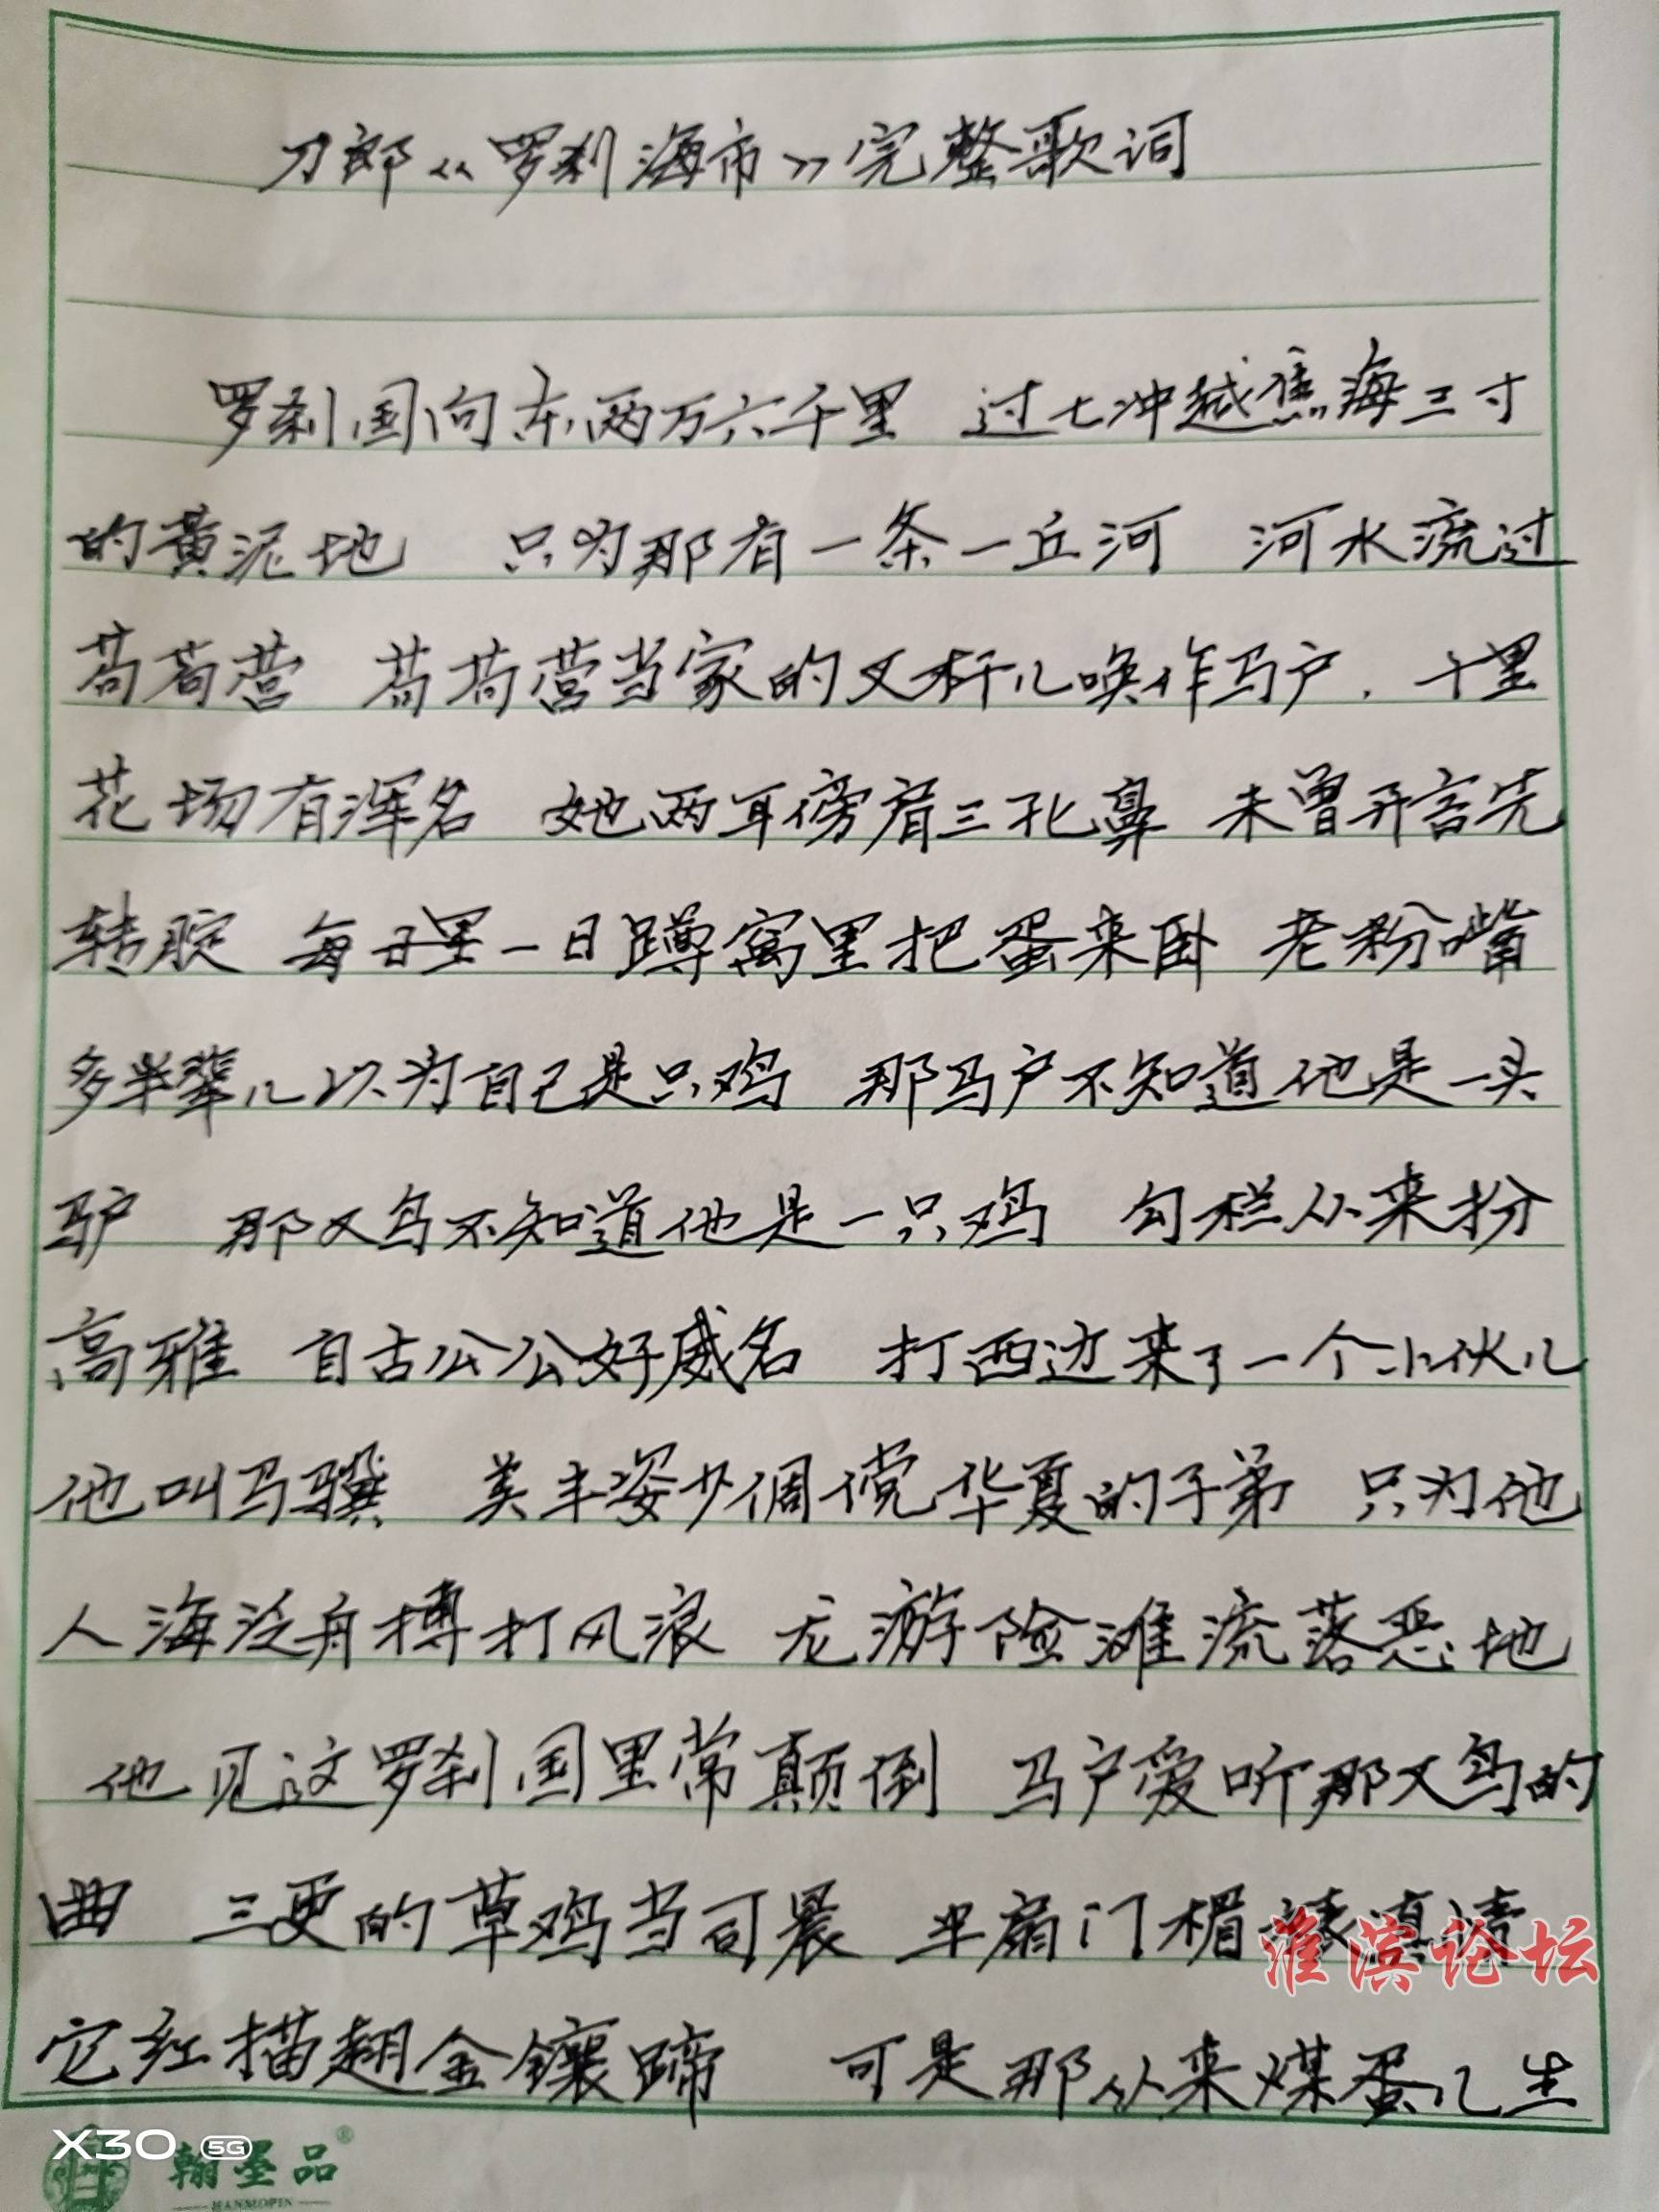 刀郎《罗刹海市》完整歌词
罗刹国向东两万六千里 过七冲越焦海三寸
的黄泥地 只为那有一条一丘河 河水流过
苟苟营 苟苟营当家的叉杆儿唤作马户 十里
花场有浑名 她两耳傍肩三孔鼻 未曾开言先
转腚 每日里一日蹲窝里把蛋来卧 老粉嘴
多半辈儿以为自己是只鸡 那马户不知道他是一头
驴 那又鸟不知道他是一只鸡 勾栏从来扮
高雅 自古公公好威名 打西边来了一个小伙儿
他叫马骥 美丰姿少倜傥华夏的子弟 只为他
人海泛舟搏打风浪 龙游险滩流落恶地
他见这罗刹国里常颠倒 马户爱听那又鸟的
曲 三更的草鸡当司晨 半扇门楣
它红描翅金镶蹄 可是那从来煤蛋儿生
淮滨论坛
X30 5G
翰墨品®
HANMOPIN